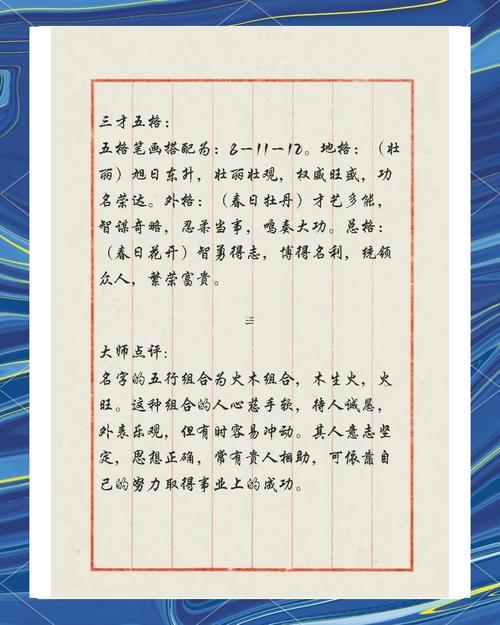 三才五格：
五格笔画搭配为：8—11—12。地格：（壮
丽）旭日东升，壮丽壮观，权威旺盛，功
名荣达。外格：（春日牡丹）才艺多能，
智谋奇略，忍柔当事，鸣奏大功。总格：
（春日花开）智勇得志，博得名利，统领
众人，繁荣富贵。
大师点评：
名字的五行组合为火木组合，木生火，火
旺。这种组合的人心慈手软，待人诚恳，
外表乐观，但有时容易冲动。其人意志坚
定，思想正确，常有贵人相助，可依靠自
己的努力取得事业上的成功。